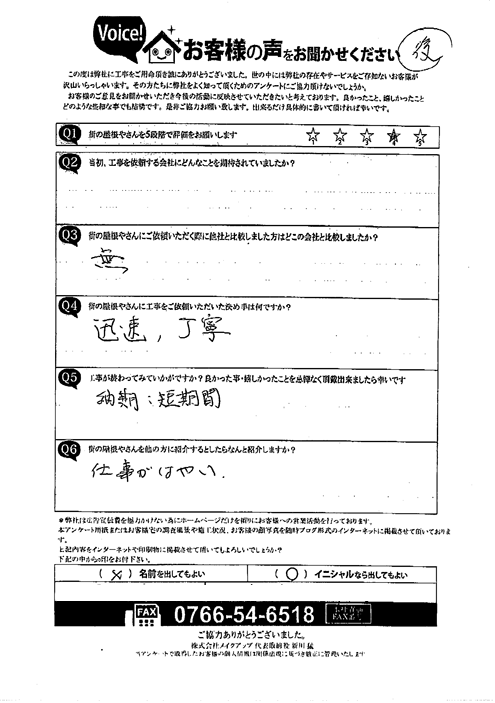 Voice!
お客様の声をお聞かせください
後
この度は弊社に工事をご用命頂き誠にありがとうございました。世の中には弊社の存在やサービスをご存知ないお客様が
沢山いらっしゃいます。その方たちに弊社をよく知って頂くためのアンケートにご協力頂けないでしょうか。
お客様のご意見をお聞かせいただき今後の活動に反映させていただきたいと考えております。良かったこと、嬉しかったこと
どのような些細な事でも結構です。是非ご協力お願い致します。出来るだけ具体的に書いて頂ければ幸いです。
Q1 街の屋根やさんを5段階で評価をお願いします ☆ ☆ ☆ ☆ ☆
Q2 当初、工事を依頼する会社にどんなことを期待されていましたか？
Q3 街の屋根やさんにご依頼いただく際に他社と比較しました方はどこの会社と比較しましたか？
無
Q4 街の屋根やさんに工事をご依頼いただいた決め手は何ですか？
迅速，丁寧
Q5 工事が終わってみていかがですか？良かった事・嬉しかったことを忌憚なく頂戴出来ましたら幸いです
納期：短期間
Q6 街の屋根やさんを他の方に紹介するとしたらなんと紹介しますか？
仕事がはやい．
＊弊社は広告宣伝費を極力かけない為にホームページだけを頼りにお客様への営業活動を行っております。
本アンケート用紙またはお客様宅の調査風景や施工状況、お客様の顔写真を随時ブログ形式のインターネットに掲載させて頂いております。
上記内容をインターネットや印刷物に掲載させて頂いてよろしいでしょうか？
下記の中から○印をお付け下さい。
（ × ）名前を出してもよい （ ○ ）イニシャルなら出してもよい
FAX 0766-54-6518
ご協力ありがとうございました。
株式会社メイクアップ 代表取締役 新川 猛